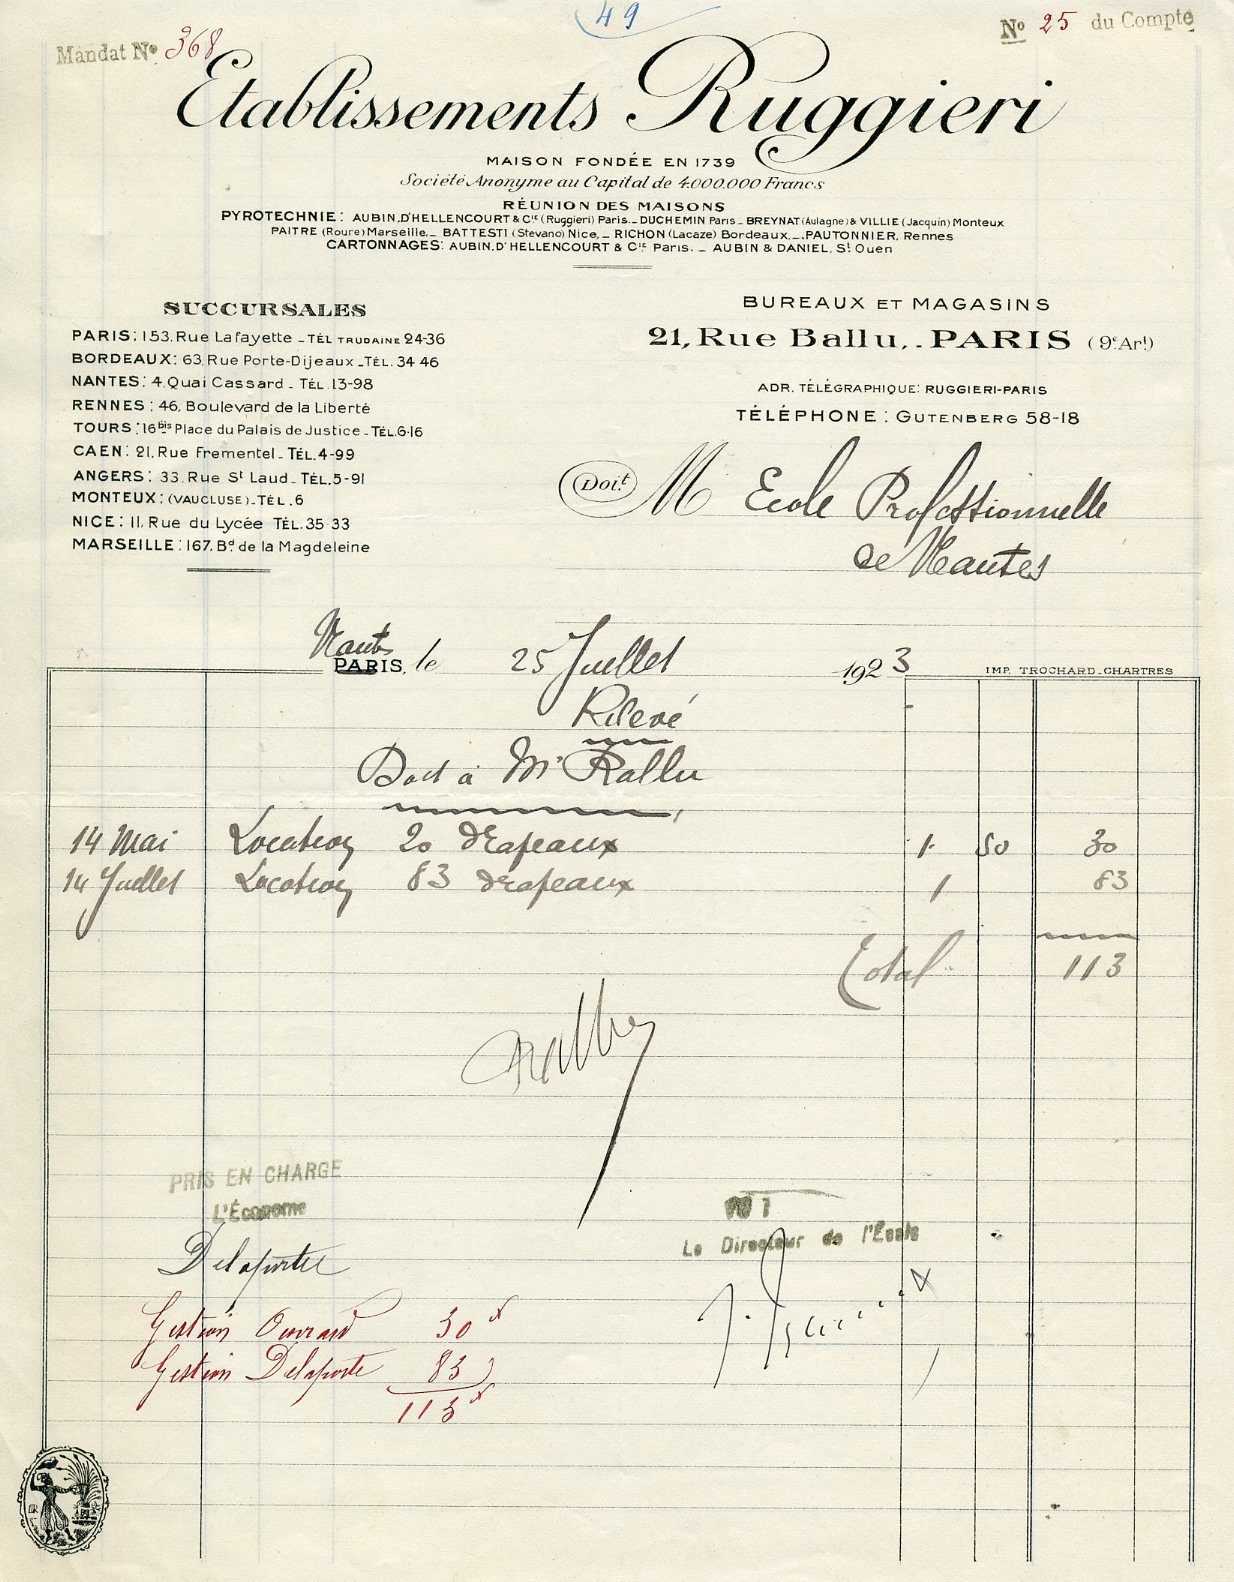 49
Mandat Nº 368
Nº 25 du Compte
Etablissements Ruggieri
MAISON FONDÉE EN 1739
Société Anonyme au Capital de 4.000.000 Francs
RÉUNION DES MAISONS
PYROTECHNIE: AUBIN, D'HELLENCOURT & Cie (Ruggieri) Paris._ DUCHEMIN Paris_ BREYNAT (Aulagne) & VILLIE (Jacquin) Monteux
PAITRE (Roure) Marseille,_ BATTESTI (Stevano) Nice,_ RICHON (Lacaze) Bordeaux,_ PAUTONNIER, Rennes
CARTONNAGES: AUBIN, D'HELLENCOURT & Cie Paris. _ AUBIN & DANIEL, St Ouen
SUCCURSALES
PARIS: 153, Rue Lafayette _ TÉL TRUDAINE 24-36
BORDEAUX: 63, Rue Porte-Dijeaux _ TÉL. 34 46
NANTES: 4, Quai Cassard _ TÉL. 13-98
RENNES: 46, Boulevard de la Liberté
TOURS: 16bis Place du Palais de Justice _ TÉL. 6-16
CAEN: 21, Rue Frementel _ TÉL. 4-99
ANGERS: 33, Rue St Laud _ TÉL. 5-91
MONTEUX: (VAUCLUSE) _ TÉL. 6
NICE: 11, Rue du Lycée TÉL. 35 33
MARSEILLE: 167, Bd de la Magdeleine
BUREAUX ET MAGASINS
21, Rue Ballu,. _ PARIS (9e Art)
ADR. TÉLÉGRAPHIQUE: RUGGIERI-PARIS
TÉLÉPHONE: GUTENBERG 58-18
Doit M Ecole Professionnelle
de Nantes
Nantes
PARIS, le 25 Juillet 1923
IMP. TROCHARD _ CHARTRES
Relevé
Doit à Mr Rallu
14 Mai Location 20 drapeaux 1 50 30
14 Juillet Location 83 drapeaux 1 83
Total 113
Rallu
PRIS EN CHARGE
L'Économe
Delaporte
VU
Le Directeur de l'École
Gestion Ouvrard 30
Gestion Delaporte 83
113